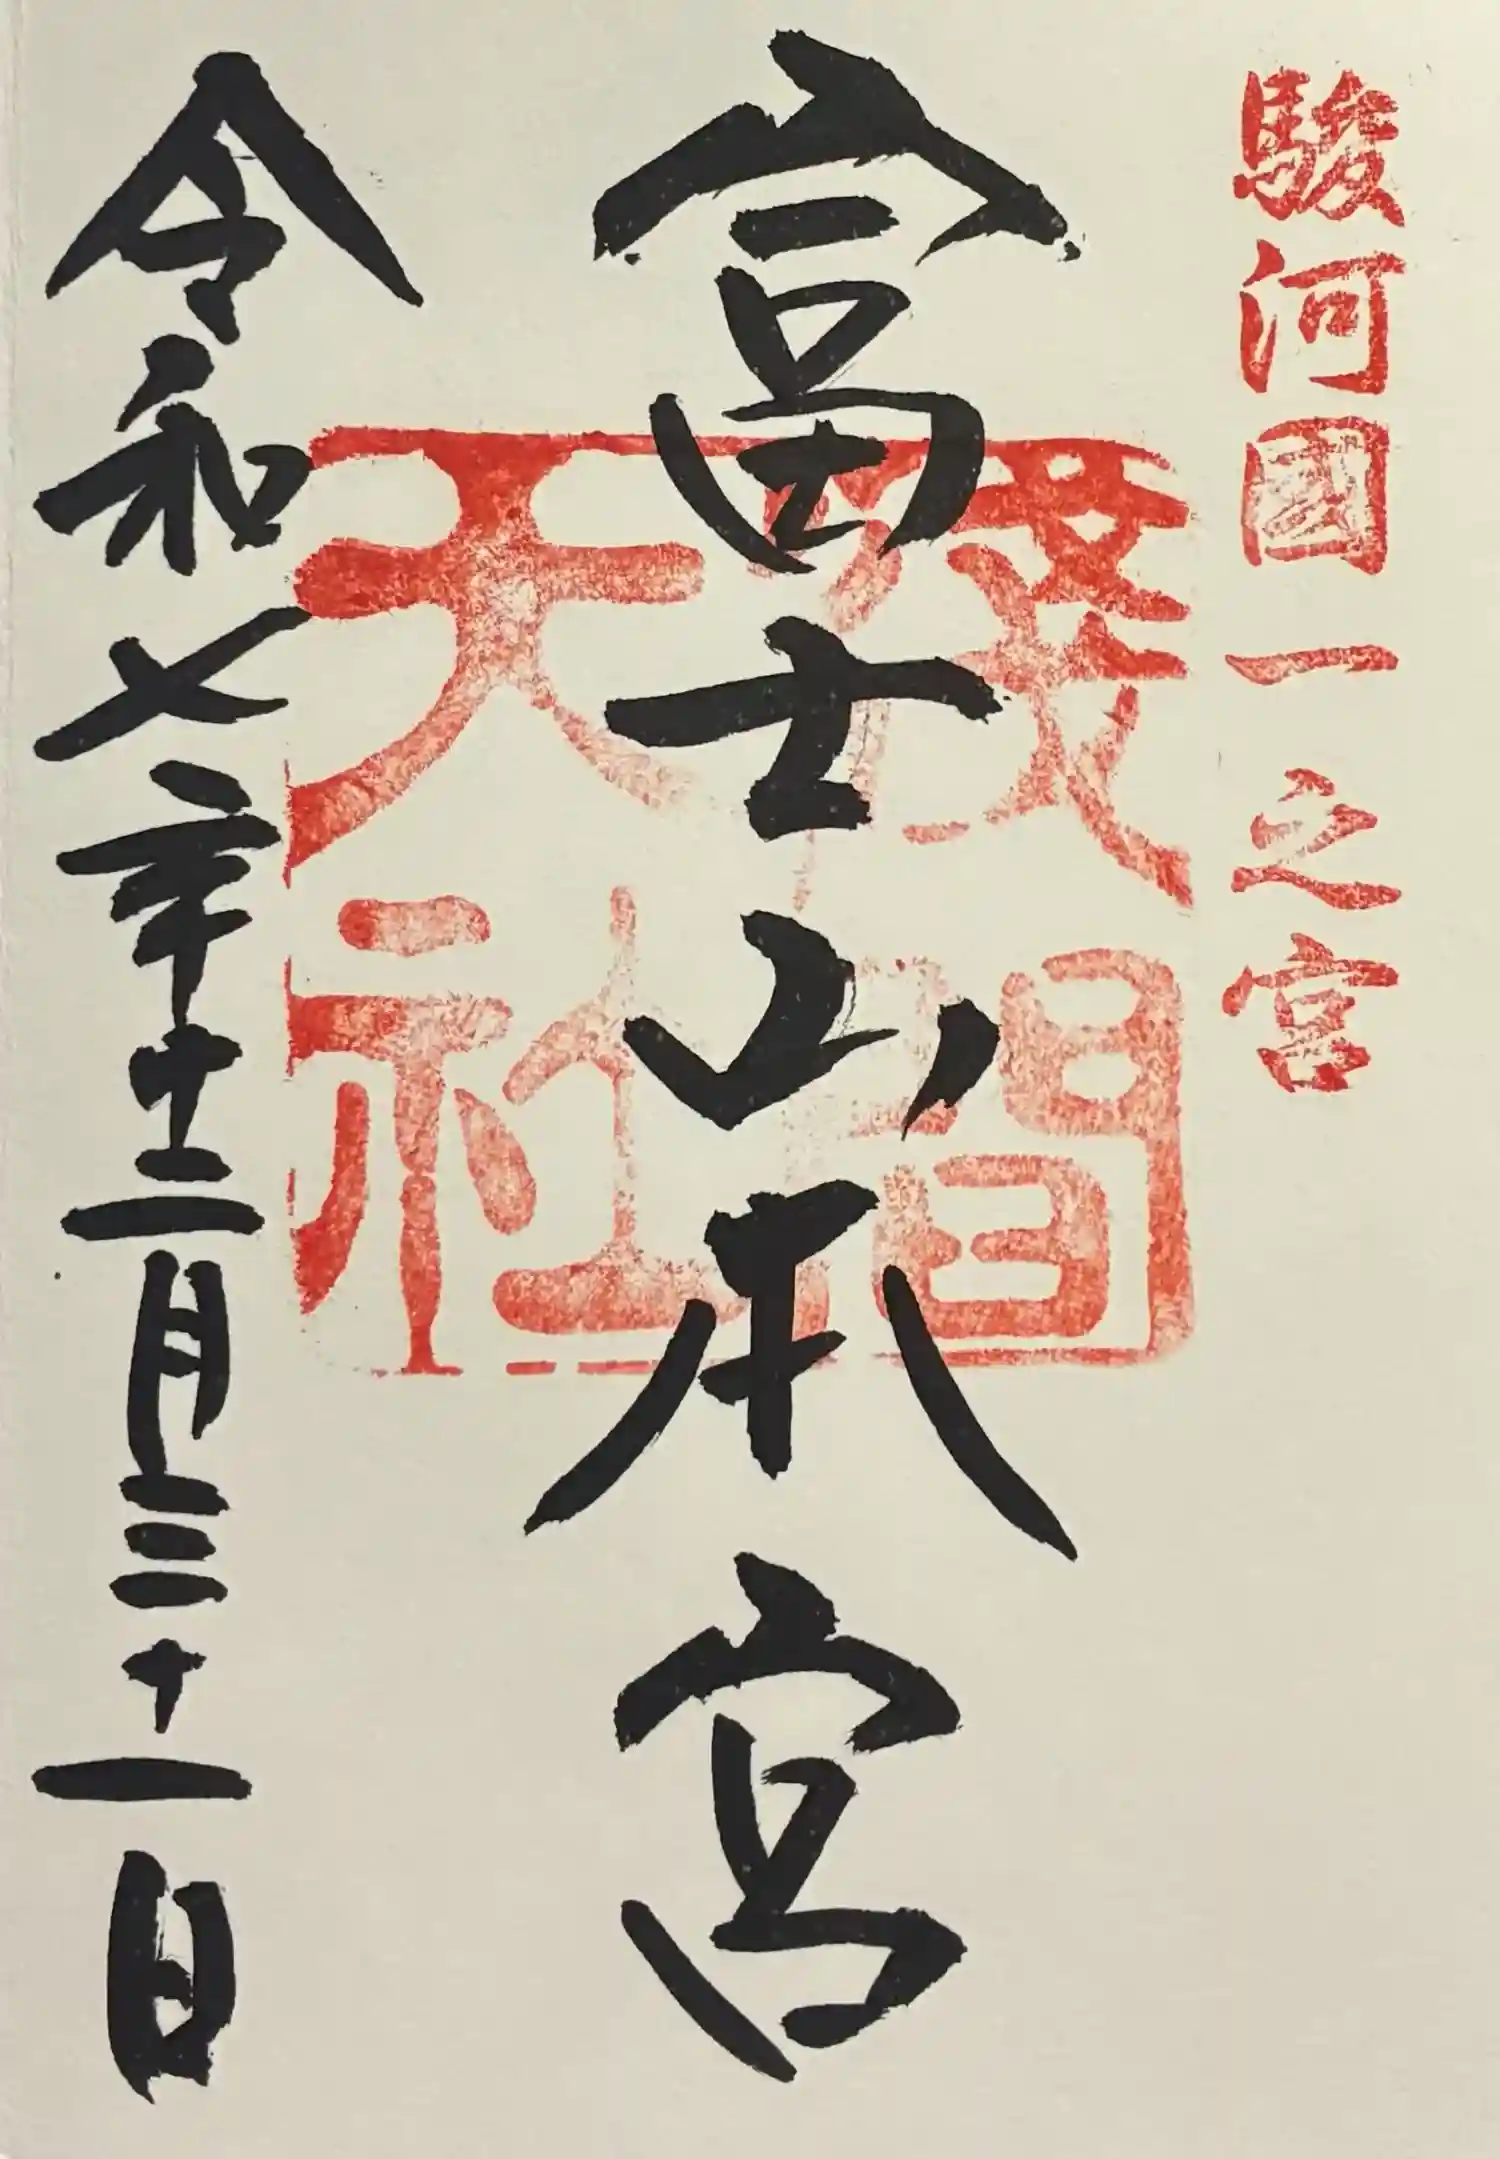 駿河國一之宮
富士山本宮
淺間大社
令和七年十二月三十一日